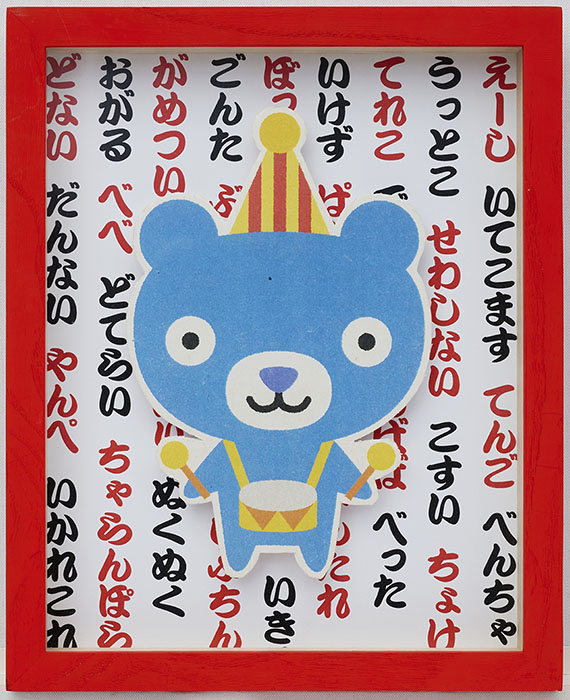 えーし いてこます てんご べんちゃ
うっとこ せわしない こすい ちょけ
てれこ べった
いけず
いき
ごんた
がめつい ぬくぬく
おがる べべ どてらい ちゃらんぽら
どない だんない やんぺ いかれこれ